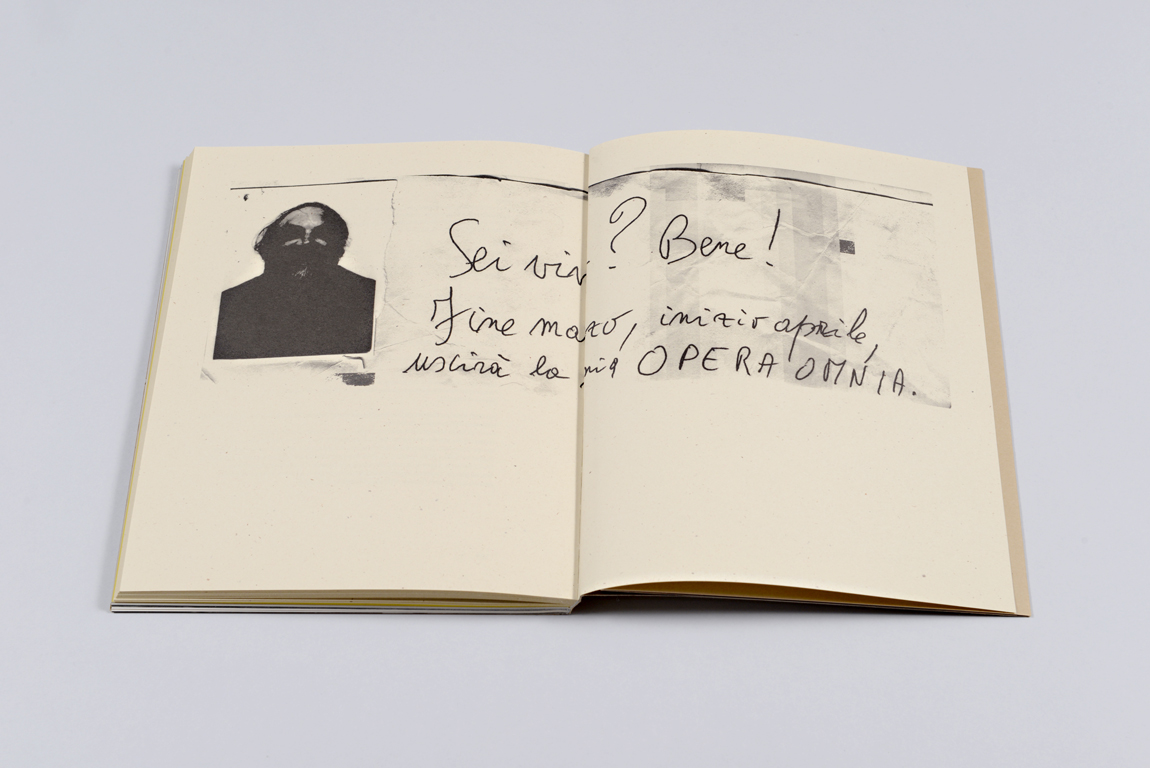 Sei vivo? Bene!
Fine marzo, inizio aprile,
uscirà la mia OPERA OMNIA.